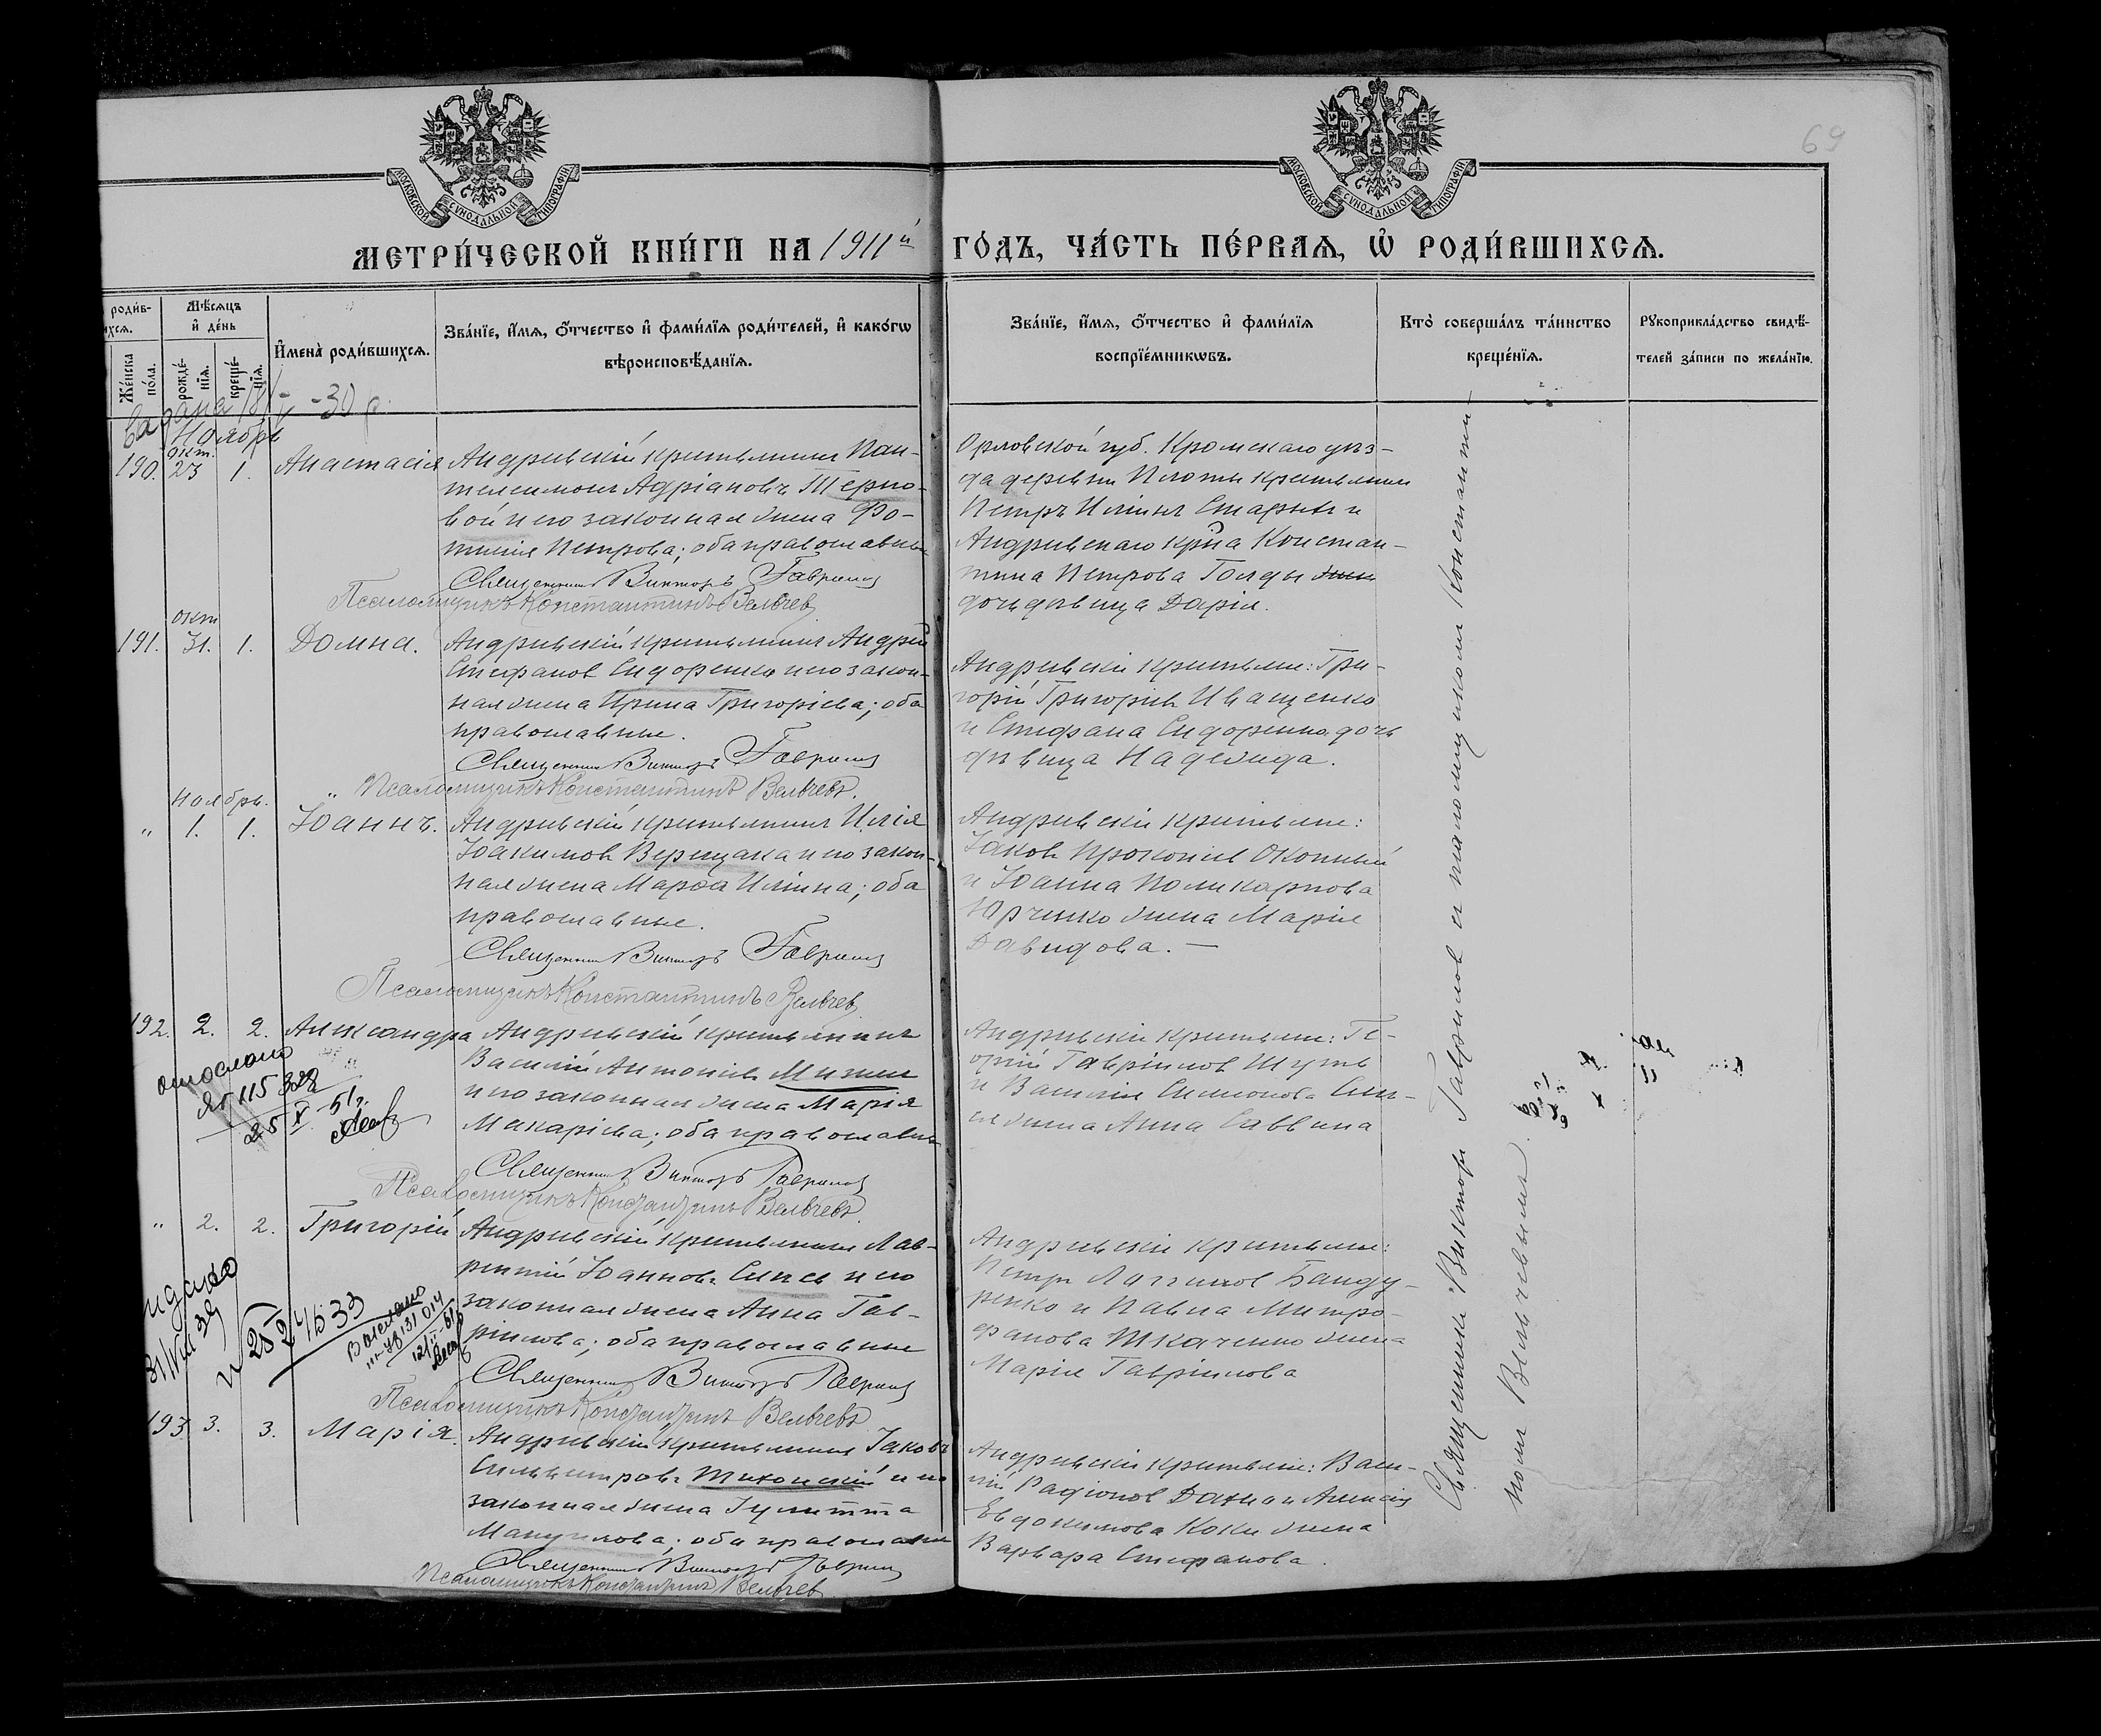 69
МОСКОВСКОЙ СУНОДАЛЬНОЙ ТИПОГРАФИИ
МОСКОВСКОЙ СУНОДАЛЬНОЙ ТИПОГРАФИИ
МЕТРИ́ЧЕСКОЙ КНИ́ГИ НА 1911й ГО́ДЪ, ЧА́СТЬ ПЕ́РВАѦ, Ѽ РОДИ́ВШИХСѦ.
роди́в-
ихсѧ.
Же́нска по́ла.
Мѣ́сѧцъ и҆ де́нь
рожде́-нїѧ.
креще́-нїѧ.
И҆мена̀ роди́вшихсѧ.
Зва́нїе, и҆́мѧ, ѻ҆́тчество и҆ фами́лїѧ роди́телей, и҆ како́гѡ
вѣроисповѣ́данїѧ.
Зва́нїе, и҆́мѧ, ѻ҆́тчество и҆ фами́лїѧ
воспрїе́мникѡвъ.
Кто̀ соверша́лъ та́инство
креще́нїѧ.
Рꙋкоприкла́дство свидѣ́-
телей за́писи по жела́нїю.
30 р.
Ноябрь
окт.
190. 23 1. Анастасія
Андреевскій крестьянинъ Пан-
телеимонъ Адріановъ Терно-
вой и его законная жена Фо-
тинія Петрова; оба православные
Священникъ Викторъ Гаврилов
Псаломщикъ Константинъ Вельчев
Орловской губ. Кромскаго уѣз-
да деревни Плоты крестьянин
Петръ Ильинъ Старыхъ и
Андреевскаго кр‑на Констан-
тина Петрова Голды
дочь дѣвица Дарія.
окт
191. 31. 1. Домна.
Андреевскій крестьянинъ Андрей
Стефанов Сидоренко и его закон-
ная жена Ирина Григоріева; оба
православные.
Священникъ Викторъ Гаврилов
Псаломщикъ Константинъ Вельчевъ.
Андреевскіе крестьяне: Гри-
горій Григоріев Иващенко
и Стефана Сидоренко дочь
дѣвица Надежда.
Ноябрь.
" 1. 1. Іоаннъ.
Андреевскій крестьянинъ Илія
Іоакимовъ Верещака и его закон-
ная жена Марѳа Ильина; оба
православные.
Священникъ Викторъ Гаврилов
Псаломщикъ Константинъ Вельчев
Андреевскіе крестьяне:
Іаковъ Прокопіев Окопный
и Іоанна Поликарпова
Юрченко жена Марія
Давидова.
192. 2. 2. Александра
Андреевскій крестьянинъ
Василій Антоніев
и его законная жена Марія
Макаріева; оба православные
Священникъ Викторъ Гаврилов
Псаломщикъ Константинъ Вельчевъ
Андреевскіе крестьяне: Ге-
оргій Гавріилов Шуть
и Василія Симонова
жена Анна Саввина
отослано
" 2. 2. Григорій
Андреевскій крестьянинъ Лав-
рентій Іоаннов и его
законная жена Анна Гав-
ріилова; оба православные
Священникъ Викторъ Гаврилов
Псаломщикъ Константинъ Вельчевъ
Андреевскіе крестьяне:
Петръ Логгинов Банду-
ренко и Павла Митро-
фанова Ткаченко жена
Марія Гавріилова
193 3. 3. Марія.
Андреевскій крестьянинъ Іаковъ
Сильвестровъ Тихонскій и его
законная жена Іулитта
Мануилова; оба православные
Священникъ Викторъ Гаврилов
Псаломщикъ Константинъ Вельчев
Андреевскіе крестьяне: Васи-
лій Радіонов Дахно и Алексія
Евдокимова Коки жена
Варвара Стефанова.
Священникъ Викторъ Гаврилов съ псаломщикомъ Константи-
номъ Вельчевымъ.